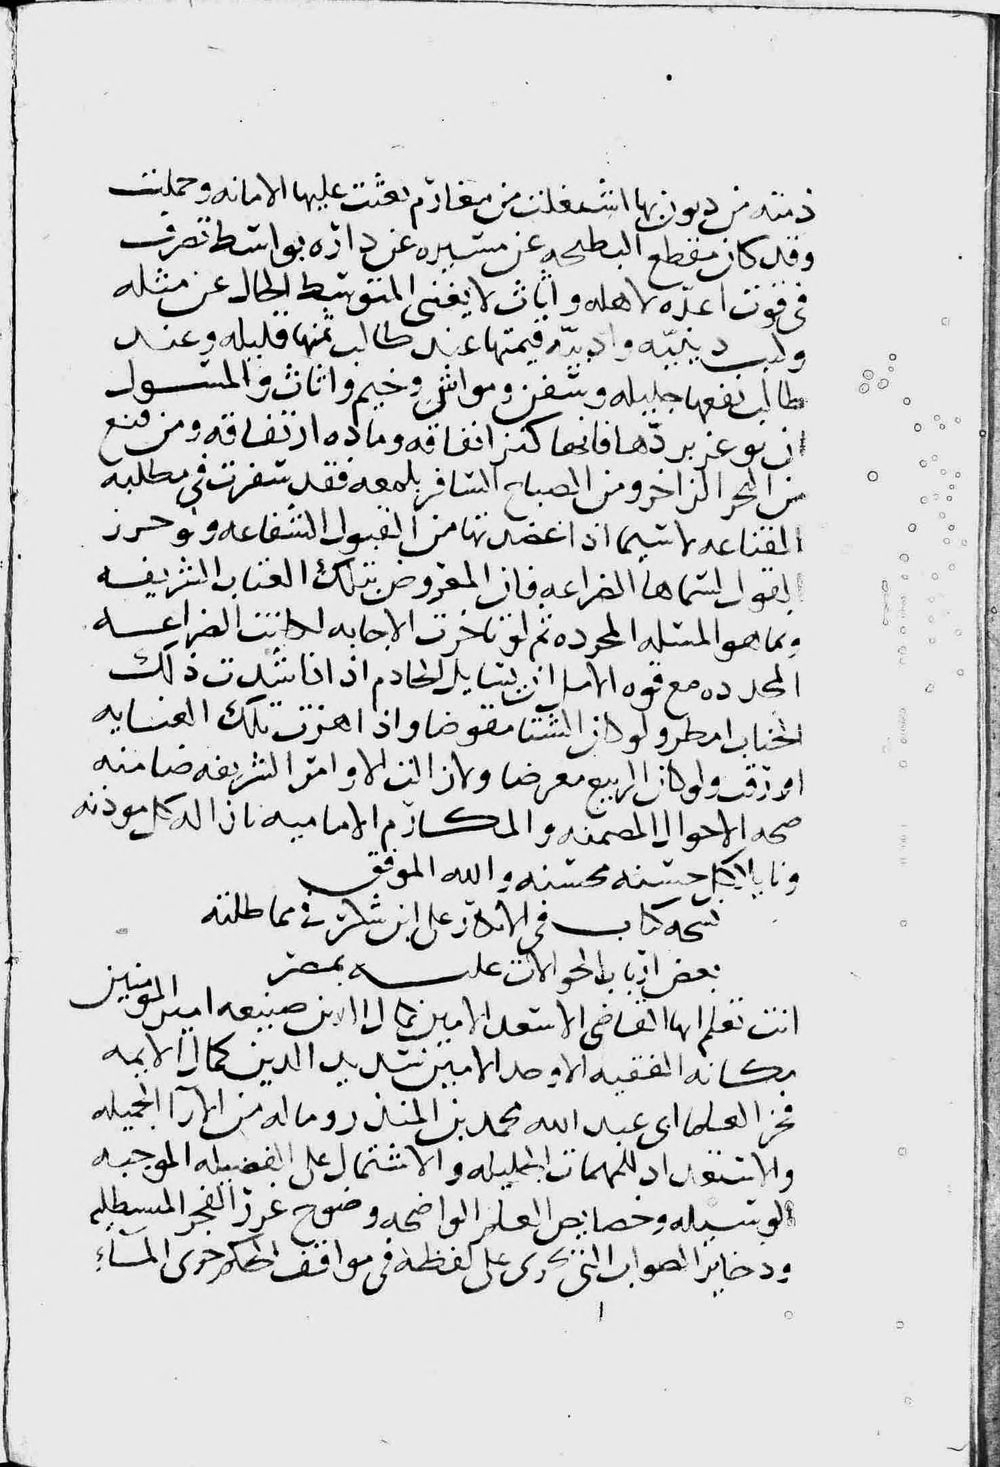 ذمته من ديون بها اشتغلت من مغارم بعثت عليها الامانه وحملت
وقد كان مقطع البطيحه عن مسيره عن داره بواسط تصرف
فى قوت اعده لاهله واثاث لا يغنى المتوسط الحال عن مثله
وكتب دينيه وادبيه قيمتها عند طالب ثمنها قليله وعند
طالب نفعها جليله وسفن ومواشى وخيم واثاث والمسول
ان يوعز بردها فانها كنز انفاقه وماده ارتفاقه ومن قنع
من البحر الزاخر ومن الصباح السافر بلمعه فقد سفرت فى مطلبه
القناعه لا سيما اذا عضدتها من القبول الشفاعه ولو حرز
القول لسماها الضراعه فان المفروض بتلك العتاب الشريفه
وبما هو المسله المجرده ثم لو تاخرت الاجابه لكانت الضراعه
المجدده مع قوه الامل ان يسايل الخادم اذ اناشدت ذلك
الجناب امطر ولو كان الشتا مقوضا واذا هزت تلك العنايه
اورقت ولو كان الربيع معرضا ولا زالت الاوامر الشريفه ضامنه
صحه الاحوال والمكارم الاماميه بازاله كل موذنه
كل حسنه محسنه والله الموفق
نسخه كتاب فى الانكار على ابن شكر فى مماطلته
بعض ارباب الحوالات عليه بمصر
انت تعلم ايها القاضى الاسعد الامين كمال الدين صنيعه امير المومنين
مكانه الفقيه الاوحد الامين سديد الدين كمال الايمه
فخر العلما اى عبد الله محمد بن المنذر وما له من الارا الجميله
والاستعداد للمهمات الجليله والاشتمال على الفضيله الموجبه
الوسيله وخصايص العلم الواضحه وضوح غرر الفجر المستطيله
وذخاير الصواب التى تجرى على لفظه فى مواقف الحكم جرى الماء